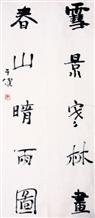 雪景寒林畫
春山晴雨圖